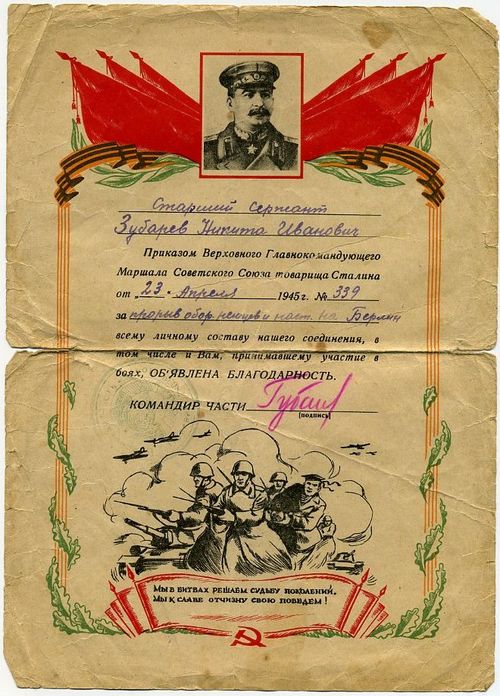 Старший Сержант
Зубарев Никита Иванович
Приказом Верховного Главнокомандующего
Маршала Советского Союза товарища Сталина
от "23" Апреля 1945 г. № 339
за прорыв обор. немцев и наст. на Берлин
всему личному составу нашего соединения, в
том числе и Вам, принимавшему участие в
боях, ОБ'ЯВЛЕНА БЛАГОДАРНОСТЬ.
КОМАНДИР ЧАСТИ
(подпись)
МЫ В БИТВАХ РЕШАЕМ СУДЬБУ ПОКОЛЕНИЙ,
МЫ К СЛАВЕ ОТЧИЗНУ СВОЮ ПОВЕДЕМ!